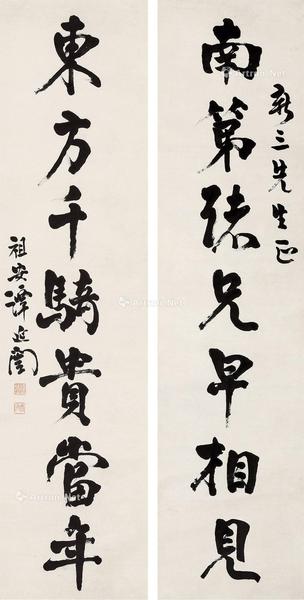 南第诸兄早相見
新三先生正
東方千騎貴當年
祖安譚延闓